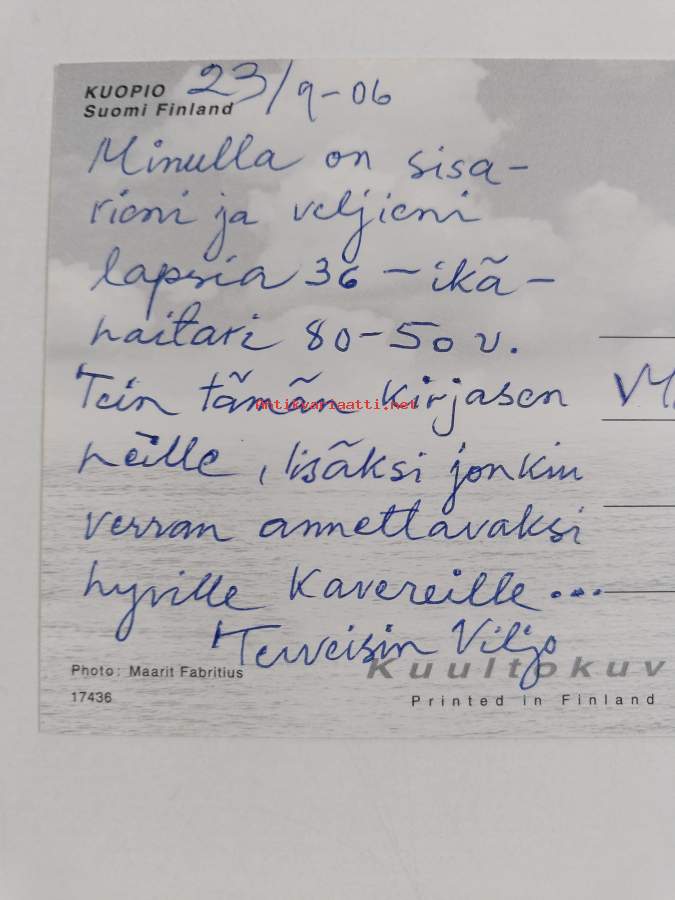 KUOPIO 23/9-06
Suomi Finland
Minulla on sisa-
rieni ja veljieni
lapsia 36 - ikä-
haitari 80-50 v.
Tein tämän kirjasen
Antikvariaatti.net
heille, lisäksi jonkin
verran annettavaksi
hyville kavereille ...
Terveisin Viljo
Photo: Maarit Fabritius
Kuultokuv
17436
Printed in Finland